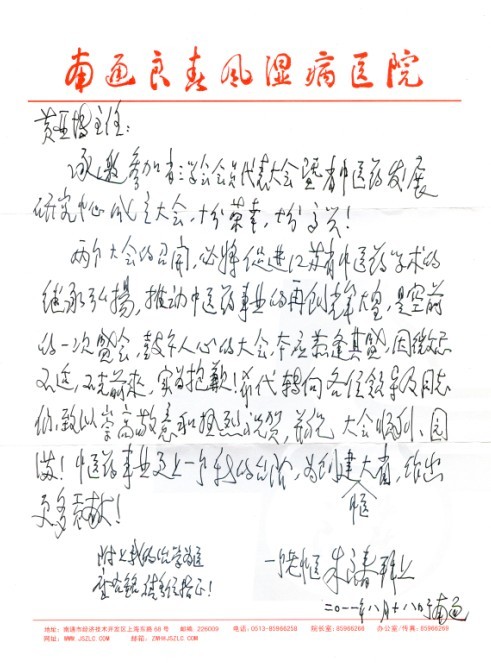 南通良春风湿病医院
黄亚博主任：
承邀参加省三学会会员代表大会暨省中医药发展
研究中心成立大会，十分荣幸，十分高兴！
两个大会的召开，必将促进江苏省中医药学术的
继承弘扬，推动中医药事业的再创，是空前
的一次盛会，鼓舞人心的大会，本应恭逢其盛，因微恙
不适，不克前来，实为抱歉！希代转向各位领导及同志
们，致以崇高敬意和热烈祝贺，并祝大会顺利、圆
满！中医药事业更上一个新的台阶，为创建中医大省，作出
更多贡献！
附上我的治学
座右铭，指正！
一老中医 朱良春 拜上
二〇一一年八月十八日于南通
地址：南通市经济技术开发区上海东路68号 邮编 226009 电话：0513-85966258 院长室：85966268 办公室/传真：85966869
网址：WWW.JSZLC.COM 邮箱：ZWH@JSZLC.COM